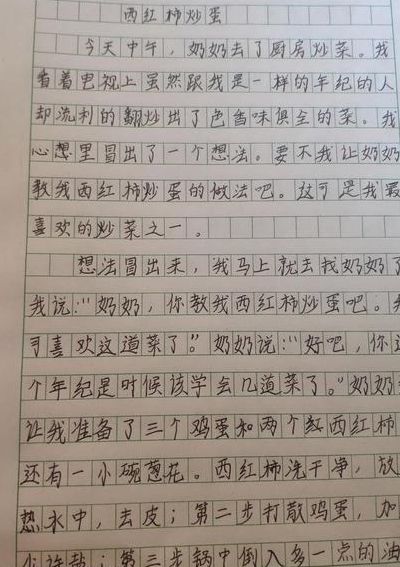 西红柿炒蛋
今天中午，奶奶去了厨房炒菜。我
看着电视上虽然跟我是一样的年纪的人
却流利的翻炒出了色香味俱全的菜。我
心想里冒出了一个想法。要不我让奶奶
教我西红柿炒蛋的做法吧。这可是我最
喜欢的炒菜之一。
想法冒出来，我马上就去找奶奶了
我说：“奶奶，你教我西红柿炒蛋吧。我
可喜欢这道菜了。”奶奶说：“好吧，你这
个年纪是时候该学会几道菜了。”奶奶
让我准备了三个鸡蛋和两个红西红柿
还有一小碗葱花。西红柿洗干净，放
热水中，去皮；第二步打散鸡蛋，加
少许盐；第三步锅中倒入多一点的油